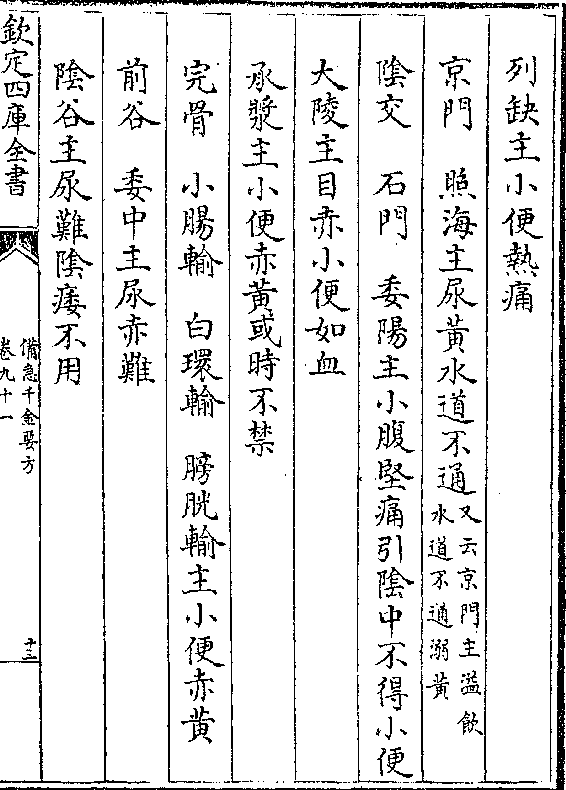 列缺主小便熱痛
京門　照海主尿黃水道不通又云京門主溢飲
水道不通溺黃
陰交　石門　委陽主小腹堅痛引陰中不得小便
大陵主目赤小便如血
承漿主小便赤黃或時不禁
完骨　小腸輸　白環輸　膀胱輸主小便赤黃
前谷　委中主尿赤難
陰谷主尿難陰痿不用
欽定四庫全書
備急千金要方
卷九十一
十三